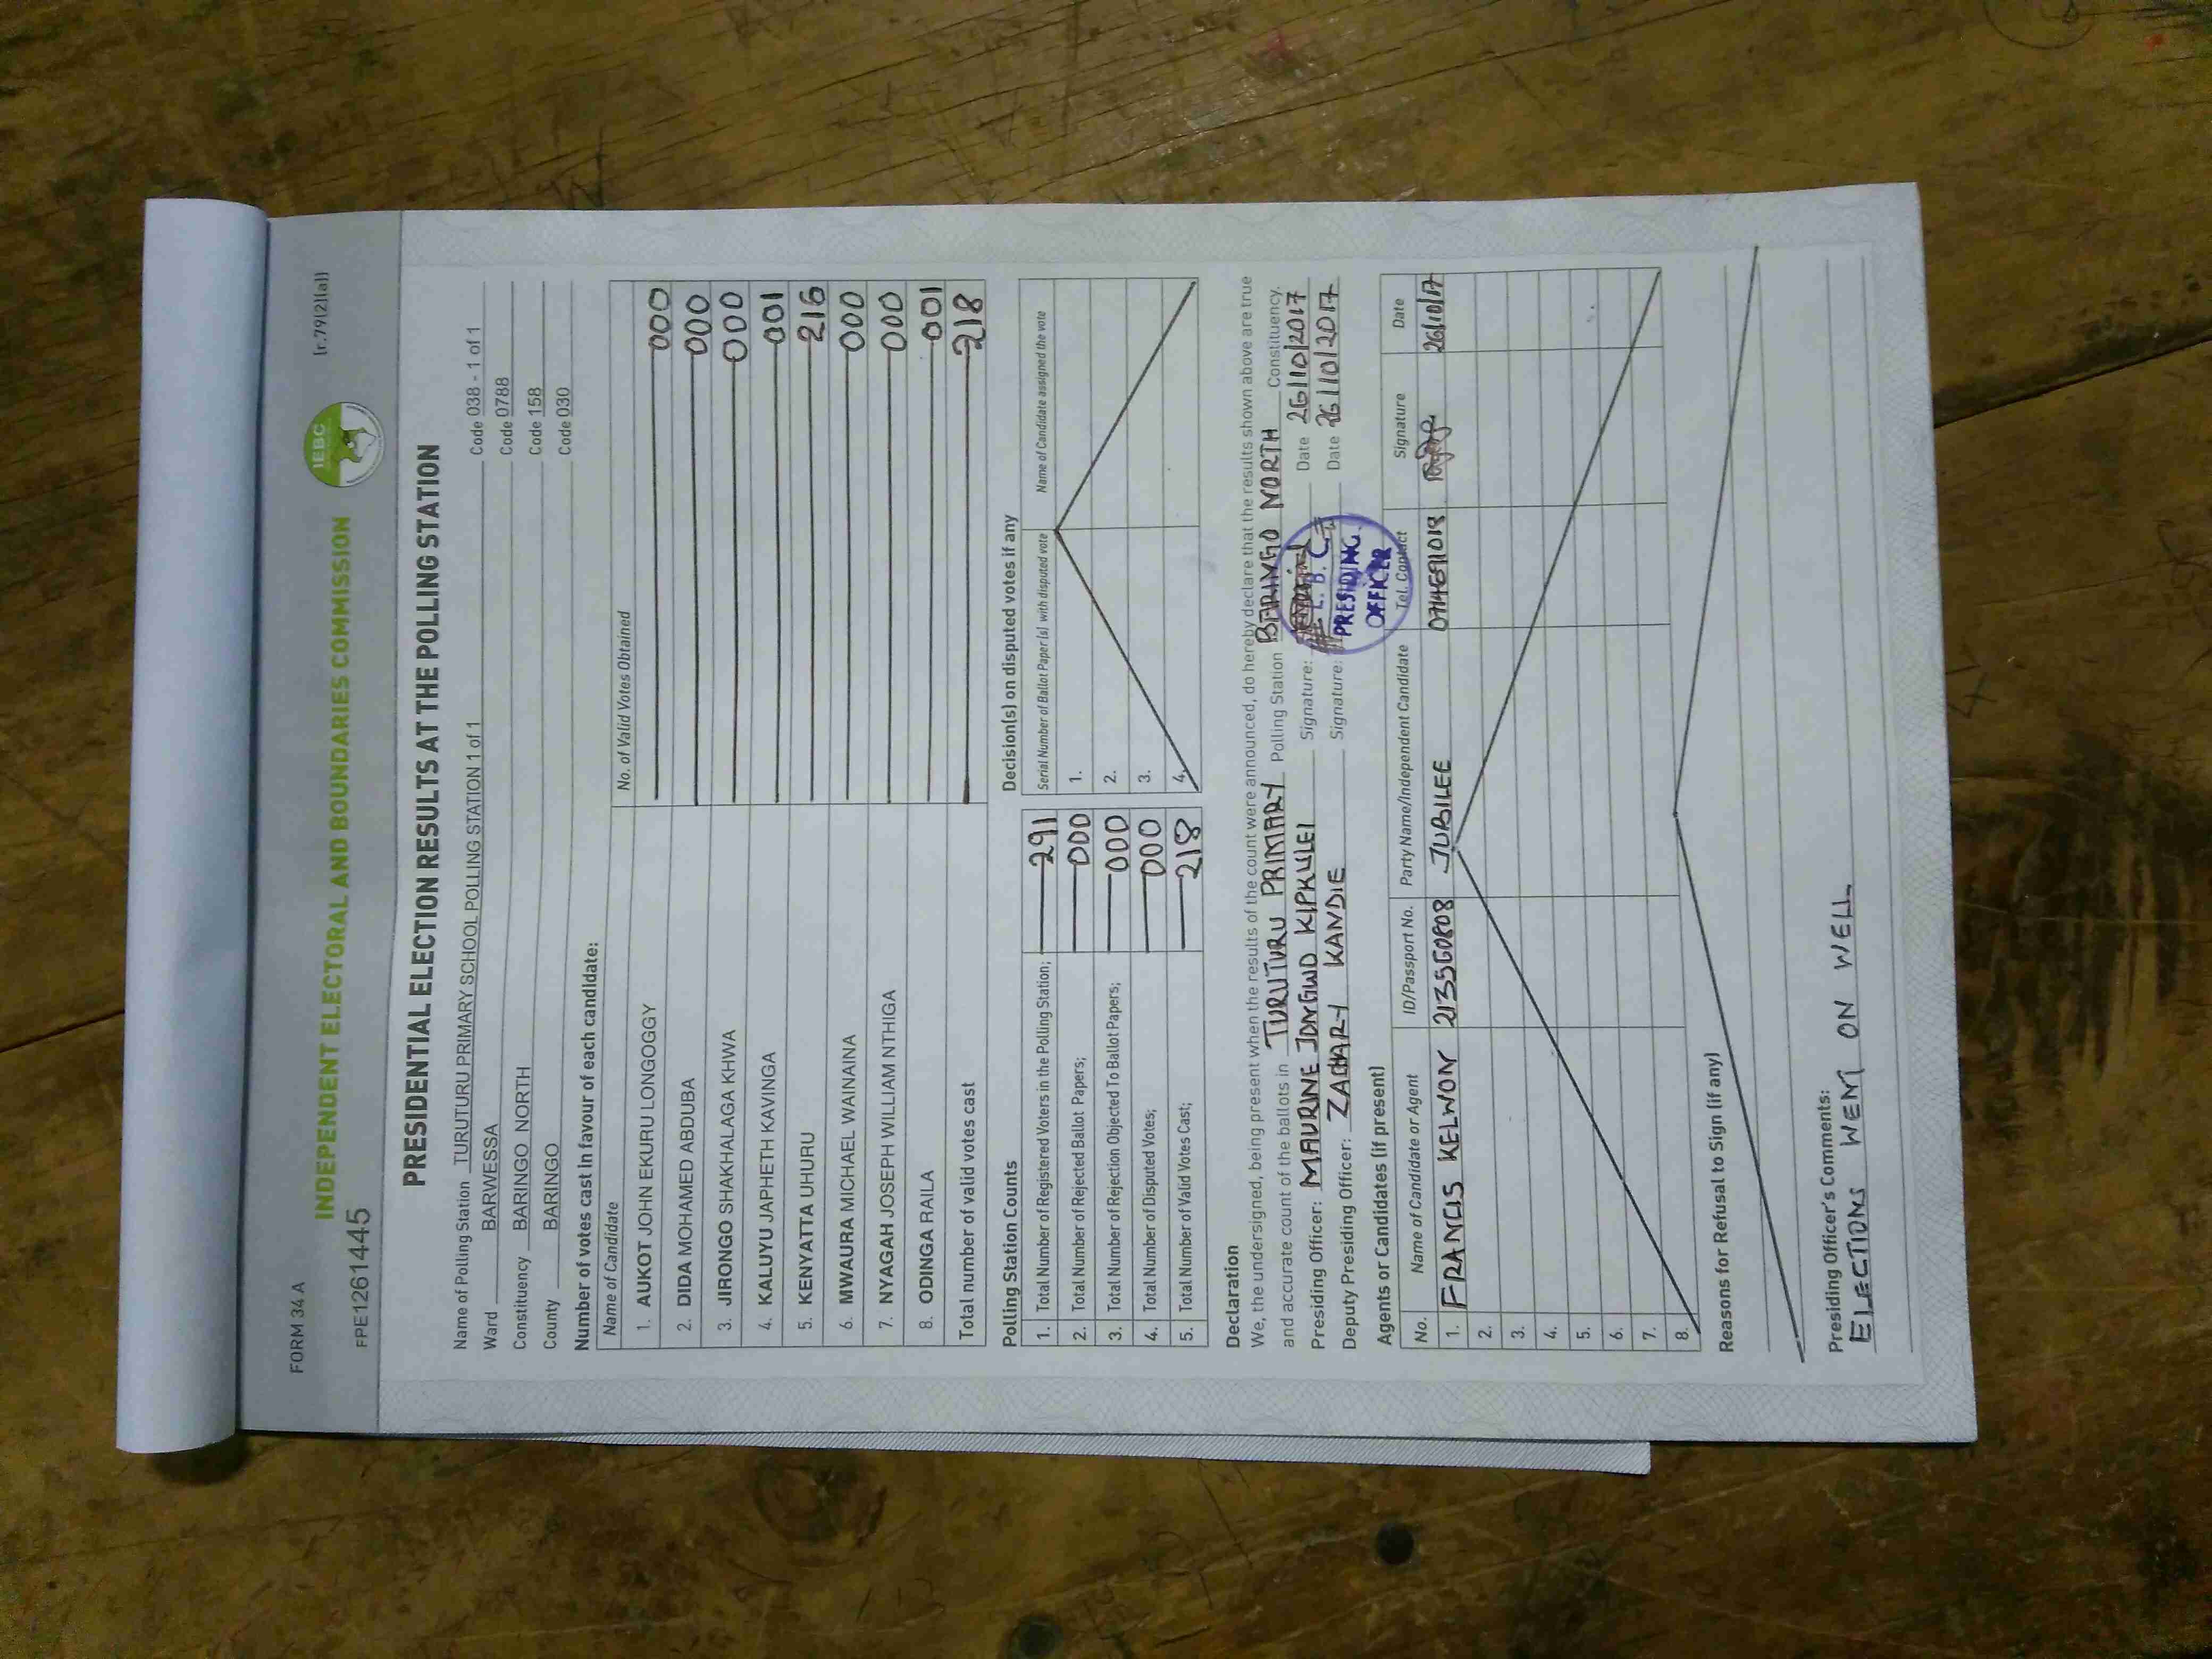 FORM 34 A
(r.79(2)(a))
INDEPENDENT ELECTORAL AND BOUNDARIES COMMISSION
IEBC
FPE1261445
PRESIDENTIAL ELECTION RESULTS AT THE POLLING STATION
Name of Polling Station TURUTURU PRIMARY SCHOOL POLLING STATION 1 of 1 Code 038 - 1 of 1
Ward BARWESSA Code 0788
Constituency BARINGO NORTH Code 158
County BARINGO Code 030
Number of votes cast in favour of each candidate:
Name of Candidate No. of Valid Votes Obtained
1. AUKOT JOHN EKURU LONGOGGY 000
2. DIDA MOHAMED ABDUBA 000
3. JIRONGO SHAKHALAGA KHWA 000
4. KALUYU JAPHETH KAVINGA 001
5. KENYATTA UHURU 216
6. MWAURA MICHAEL WAINAINA 000
7. NYAGAH JOSEPH WILLIAM NTHIGA 000
8. ODINGA RAILA 001
Total number of valid votes cast 218
Polling Station Counts
1. Total Number of Registered Voters in the Polling Station; 291
2. Total Number of Rejected Ballot Papers; 000
3. Total Number of Rejection Objected To Ballot Papers; 000
4. Total Number of Disputed Votes; 000
5. Total Number of Valid Votes Cast; 218
Decision(s) on disputed votes if any
Serial Number of Ballot Paper(s) with disputed vote Name of Candidate assigned the vote
1.
2.
3.
4.
Declaration
We, the undersigned, being present when the results of the count were announced, do hereby declare that the results shown above are true
and accurate count of the ballots in TURUTURU PRIMARY Polling Station BARINGO NORTH Constituency.
Presiding Officer: MAURINE KIPKULEI Signature: Date 26/10/2017
Deputy Presiding Officer: ZACHARY KANDIE Signature: Date 26/10/2017
I.E.B.C
PRESIDING
OFFICER
Agents or Candidates (if present)
No. Name of Candidate or Agent ID/Passport No. Party Name/Independent Candidate Tel. Contact Signature Date
1. FRANCIS KELWON JUBILEE 26/10/17
2.
3.
4.
5.
6.
7.
8.
Reasons for Refusal to Sign (if any)
Presiding Officer's Comments:
ELECTIONS WENT ON WELL